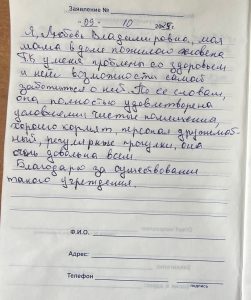 Заявление №
«09» 10 2025г.
Я, Любовь Владимировна, моя
мама в доме пожилого человека
т.к. у меня проблема со здоровьем
и нет возможности самой
заботится о ней. По ее словам,
она полностью удовлетворена
условиями чистые помещения,
хорошо кормят, персонал дружелюб-
ный, регулярные прогулки, она
очень довольна всем
Благодарю за существование
такого учреждения.
Ф.И.О.
Адрес:
Телефон
подпись